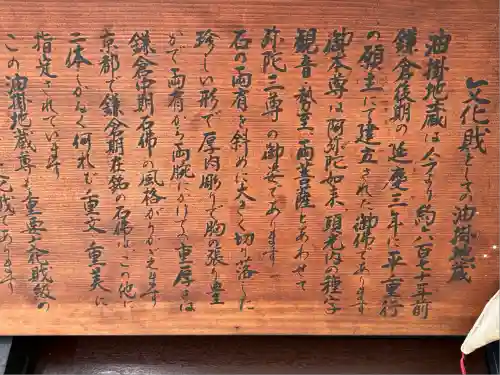 文化財としての油掛地蔵
油掛地蔵は今より約六百七十年前
鎌倉後期の延慶三年に平重行
の願主にて建立された御佛であります
御本尊は阿弥陀如来頭光内の種字
観音勢至両菩薩とあわせて
弥陀三尊の御姿であります
石の両肩を斜めに大きく切り落した
珍しい形で厚肉彫りで胸の張り豊
かで両肩から両腕にかけての重厚さは
鎌倉中期石佛の風格がうかがえます
京都で鎌倉期在銘の石佛はこの他に
二体しかなく何れも重文重美に
指定されています
この油掛地蔵尊も重要文化財級の
文化財であります